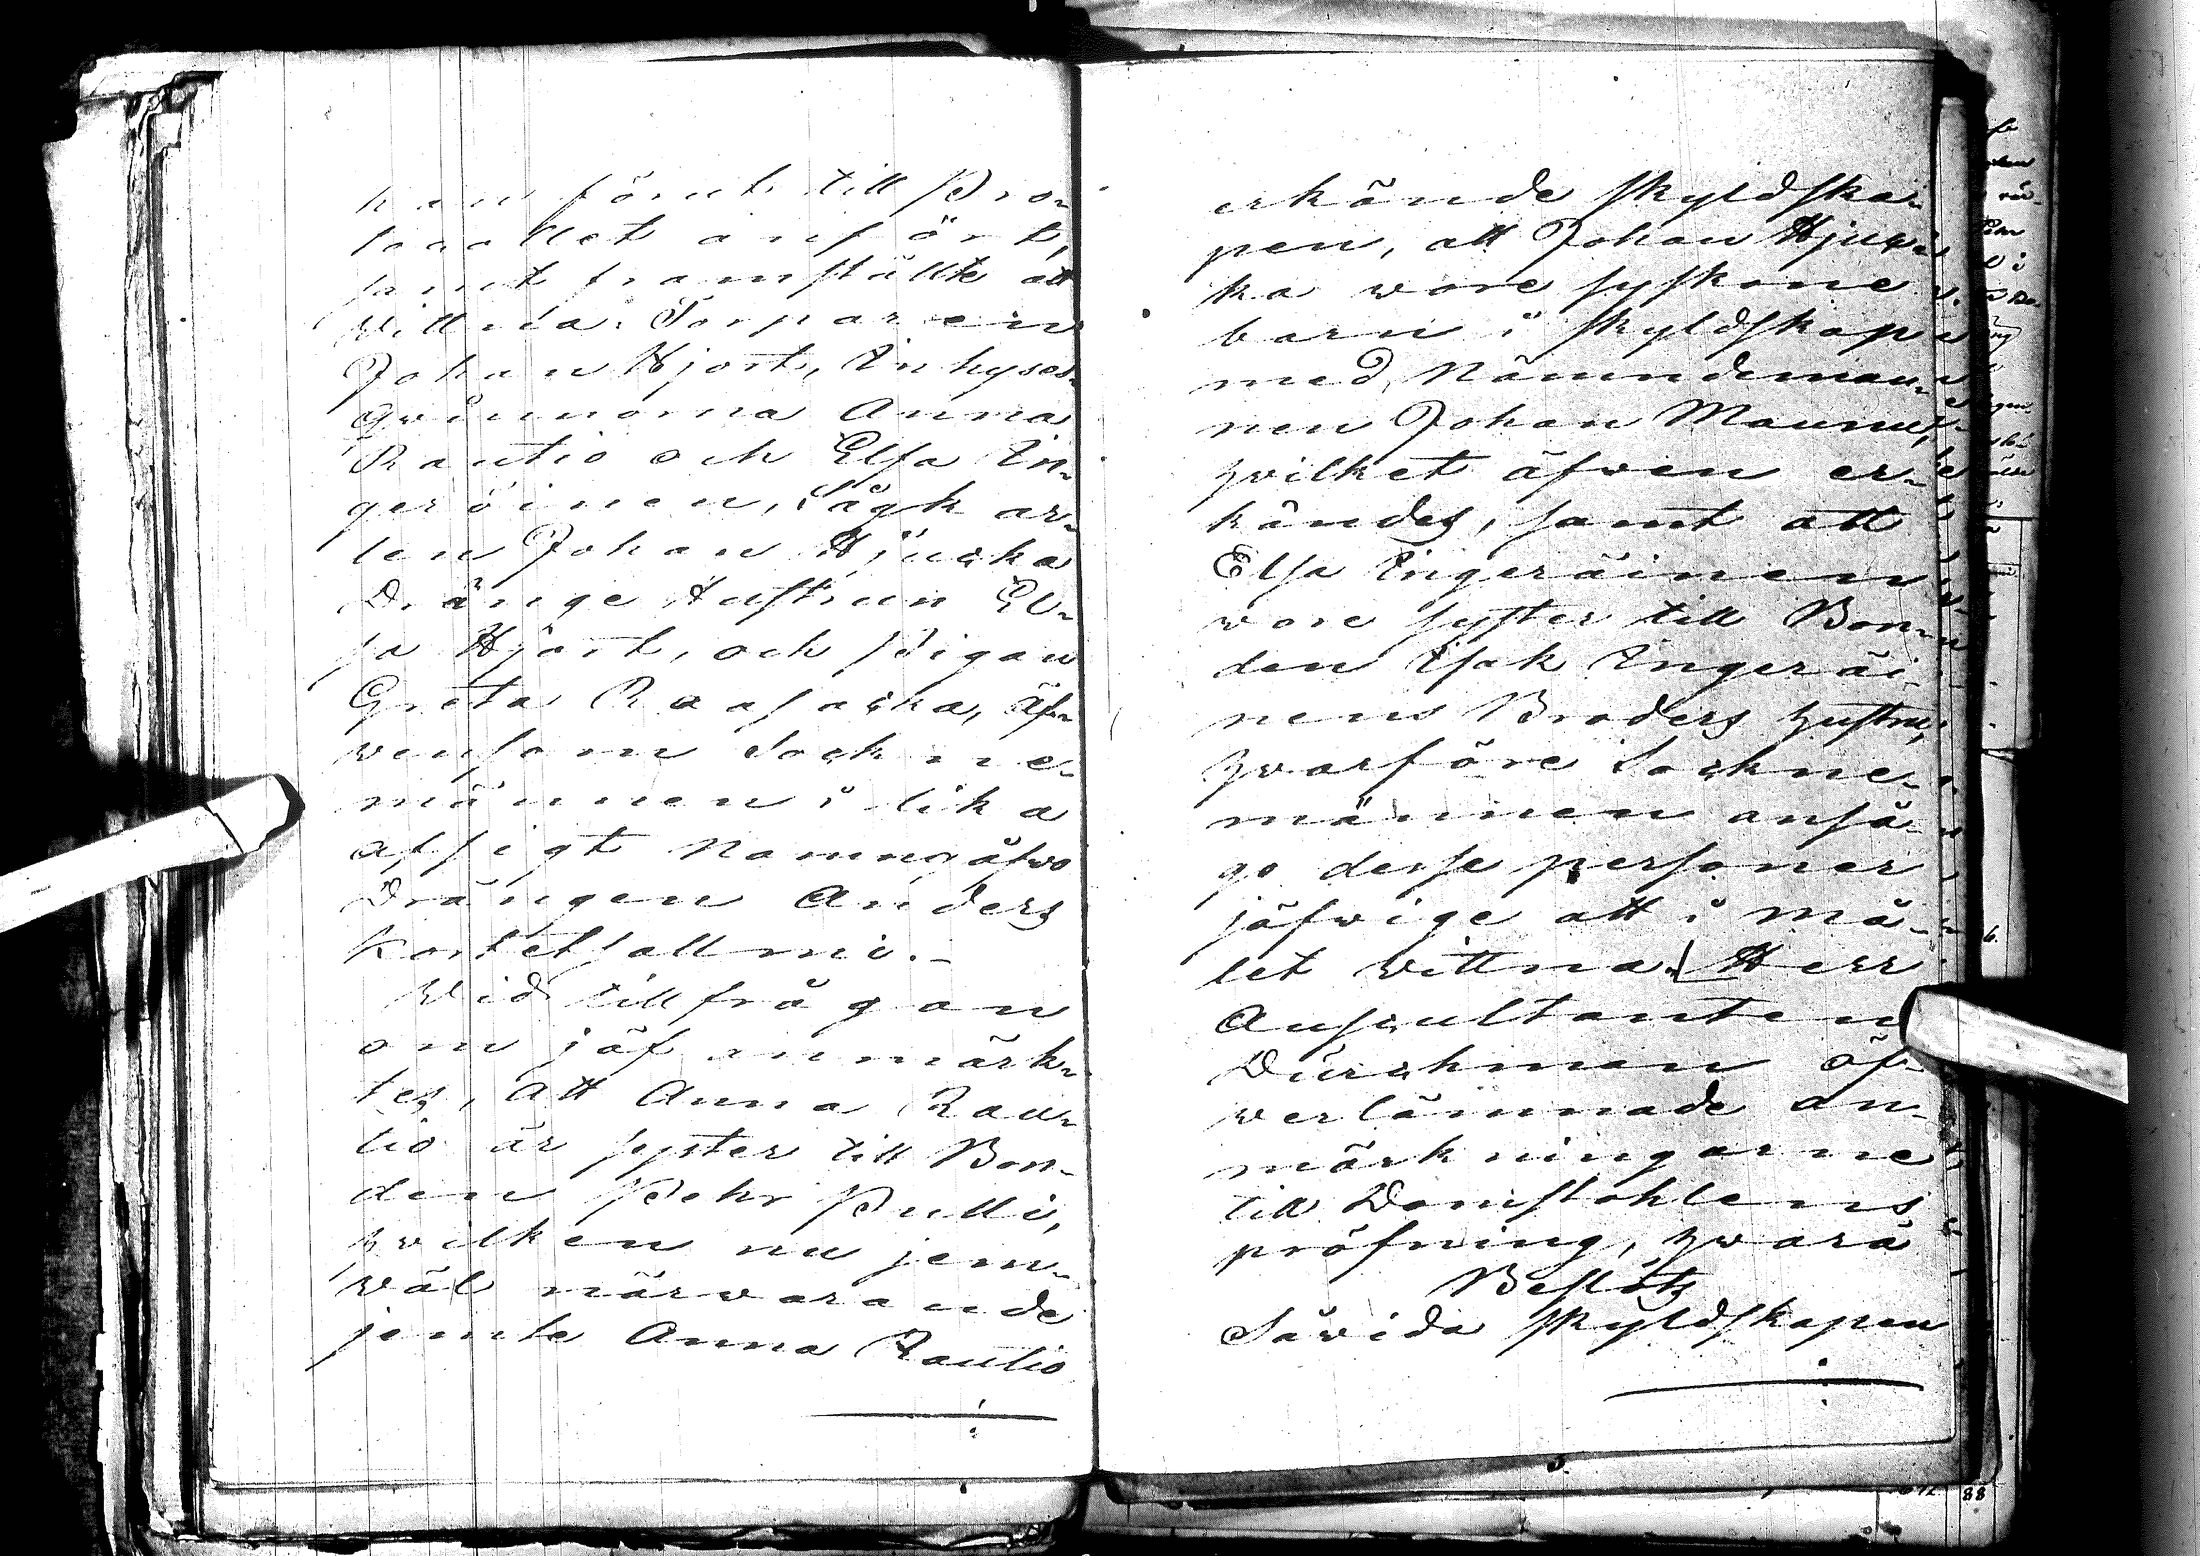 han förut till Pro-
tocollet anfört,
samt framställte att
vittna: Torparen
Johan Hjort, Inhyses-
qvinnorna Anna
Rautio och Elsa In-
geröinen, Sågkar-
len Johan Hjucka
Dränge Hustrun El-
sa Hjort, och Pigan
Greta Raasacka, äf-
vensom Sockne-
männen i lika
afsigt namngåfvo
Drängen Anders
Kortetsallmi.-
Wid tillfrågan
om jäf anmärk-
tes, att Anna Rau-
tio är syster till Bon-
den Pehr Pulli,
hvilken nu jem-
väl närvarande
jemte Anna Rautio
erkände skyldska-
pen, att Johan Hjuc-
ka wore syskone
barn i skyldskap
med Nämndeman-
nen Johan Maunu,
hvilket äfven er-
kändes, samt att
Elsa Ingeräinen
wore syster till Bon-
den Isak Ingeräi-
nens Broders hustru,
hvarföre Sockne-
männen anså-
go desse personer
jäfvige att i må-
let vittna. Herr
Auscultanten
Dürchman öf-
verlämnade an-
märkningarne
till Domstohlens
pröfning, hvarå
Beslöts
Såvida skyldskapen